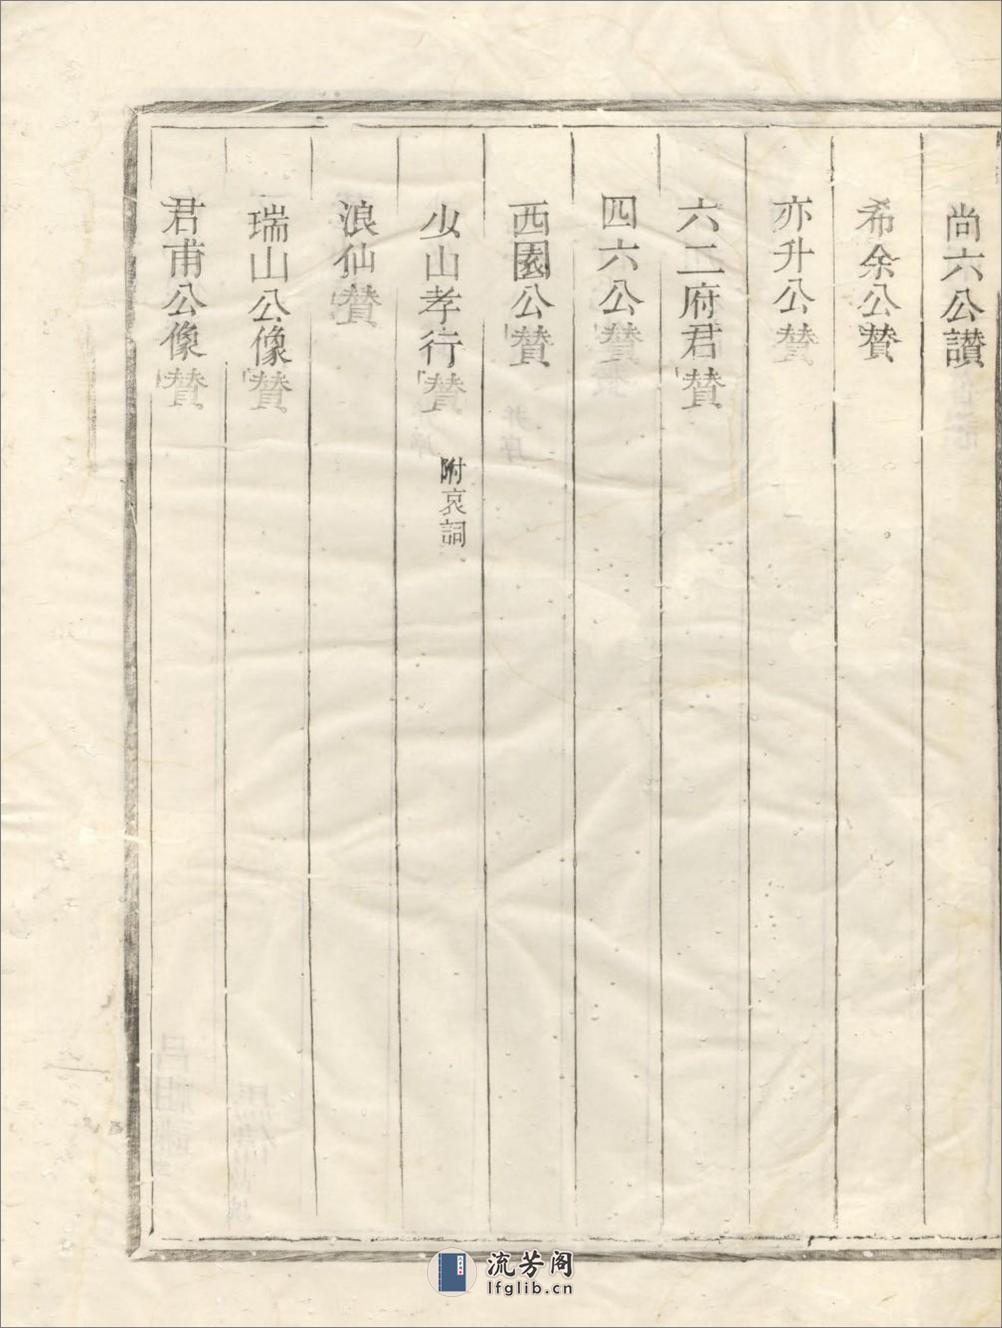 尚六公讃
希余公賛
亦升公賛
六二府君賛
四六公賛
西園公賛
少山孝行賛 附哀詞
浪仙賛
瑞山公像賛
君甫公像賛
流芳阁
lfglib.cn